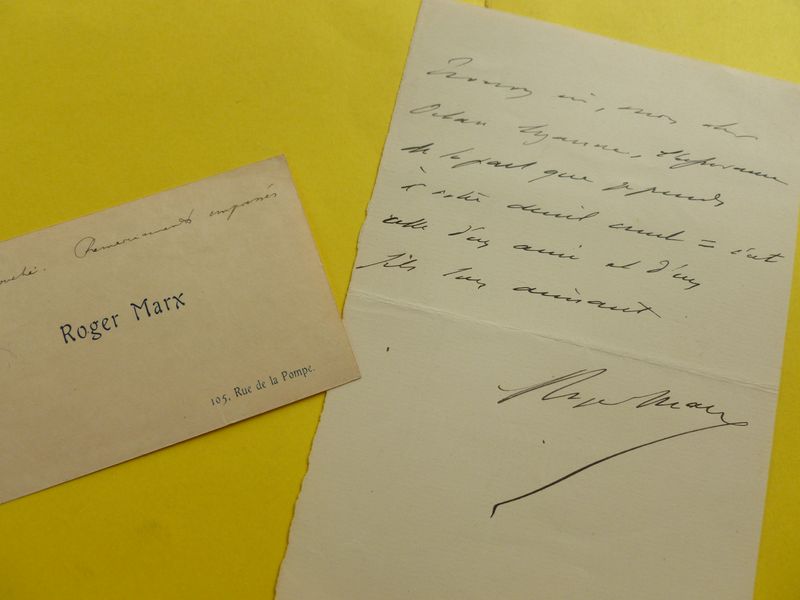 Remerciements empressés
Roger Marx
105, Rue de la Pompe.
Trouvez ici, mon cher
Octave Uzanne, l'assurance
de la part que je prends
à votre deuil cruel = c'est
celle d'un ami et d'un
fils bien aimant
Roger Marx